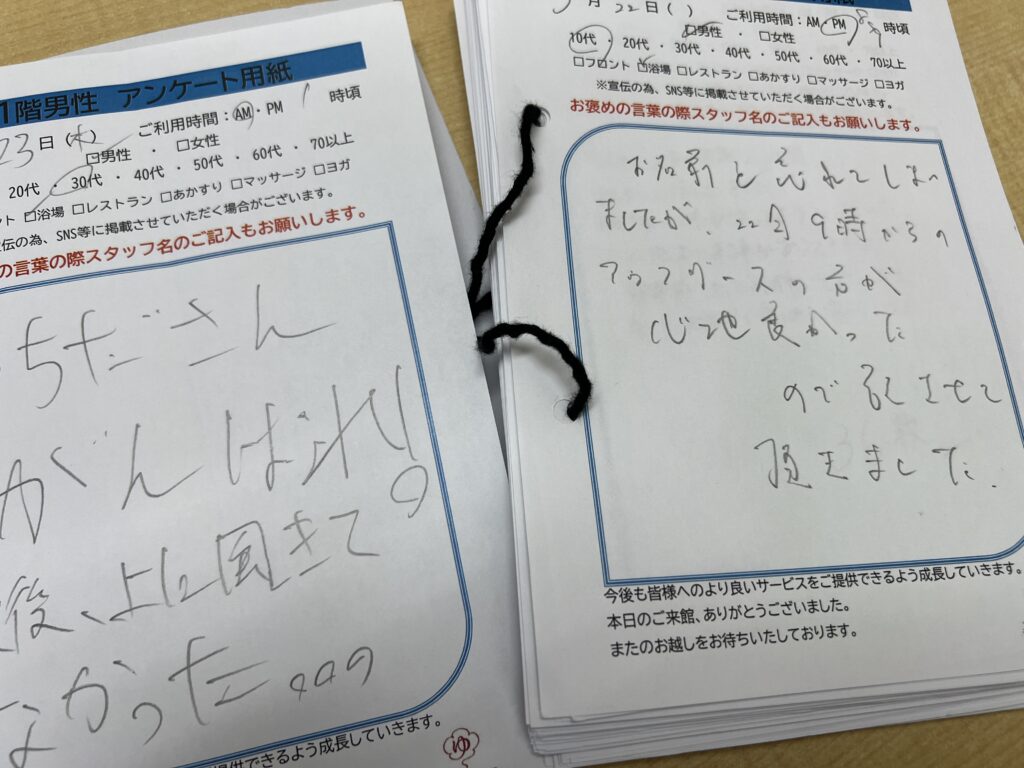 1階男性 アンケート用紙
23日(水) ご利用時間:AM・PM 1 時頃
□男性 ・ □女性
20代 ・ 30代 ・ 40代 ・ 50代 ・ 60代 ・ 70以上
ント □浴場 □レストラン □あかすり □マッサージ □ヨガ
宣伝の為、SNS等に掲載させていただく場合がございます。
の言葉の際スタッフ名のご記入もお願いします。
ちださん
がんばれ!
後、上に風きて
なかった...
提供できるよう成長していきます。
ゆ
月22日( ) ご利用時間:AM・PM 時頃
□男性 ・ □女性
10代 ・ 20代 ・ 30代 ・ 40代 ・ 50代 ・ 60代 ・ 70以上
□フロント □浴場 □レストラン □あかすり □マッサージ □ヨガ
※宣伝の為、SNS等に掲載させていただく場合がございます。
お褒めの言葉の際スタッフ名のご記入もお願いします。
お名前と忘れてしまっ
ましたが、22日9時からの
アウフグースの方が
心地良かった
ので記させて
頂きました.
今後も皆様へのより良いサービスをご提供できるよう成長していきます。
本日のご来館、ありがとうございました。
またのお越しをお待ちいたしております。